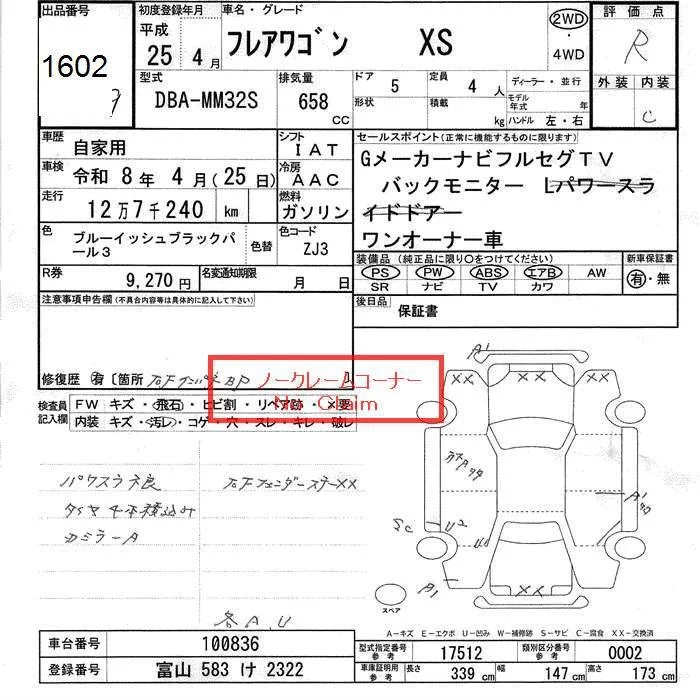 出品番号
1602
初度登録年月
平成
25 年 4 月
車名・グレード
フレアワゴン XS
2WD
・
4WD
評価点
R
型式
DBA-MM32S
排気量
658
CC
ドア 5
定員 4 人
形状
積載 kg
ディーラー・並行
モデル年式 年
ハンドル 左・右
外装 内装
C
車歴
自家用
シフト
IAT
セールスポイント(正常に機能するものに限ります)
GメーカーナビフルセグTV
バックモニター Lパワースラ
イドドアー
ワンオーナー車
車検
令和 8年 4月(25日)
冷房
AAC
走行
12万7千240 km
燃料
ガソリン
色
ブルーイッシュブラックパ
ール3
色替
色コード
ZJ3
装備品(純正品に限り○をつけてください)
新車保証書
PS PW ABS エアB AW
SR ナビ TV カワ
有・無
R券
9,270円
名変通知期限
月 日
後日品
保証書
注意事項申告欄(不具合内容等は具体的に記入して下さい)
修復歴 有 〔箇所
ノークレームコーナー
No Claim
検査員
記入欄
FW キズ・飛石・ヒビ割・リペア跡・×要
内装 キズ・汚レ・コゲ・穴・スレ・キレ・破レ
パワスラ不良
タイヤ4本積込み
カミラーA
右Fフェンダーステーxx
各A,U
A'
XX
XX
A'
U2
A1
XX
スペア
A-キズ E-エクボ U-凹み W-補修跡 S-サビ C-腐食 XX-交換済
車台番号
100836
登録番号
富山 583 け 2322
型式指定番号
参考
17512
類別区分番号
参考
0002
車庫証明用
参考
長さ 339 cm
幅 147 cm
高さ 173 cm